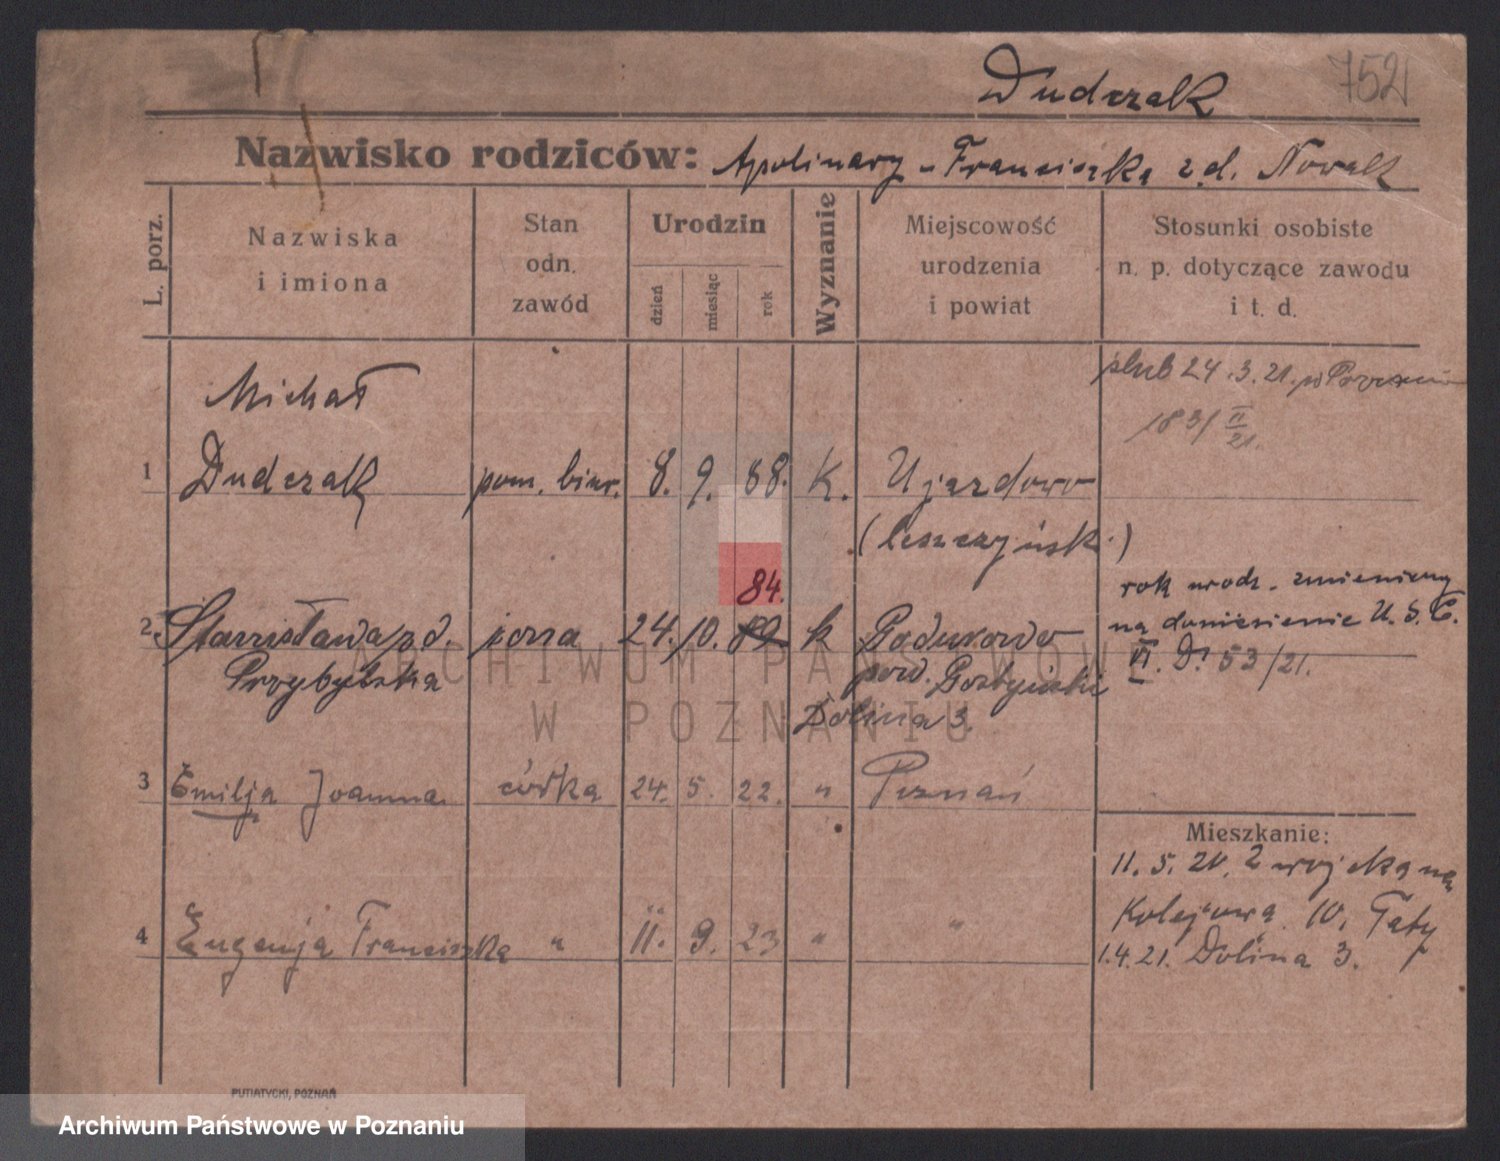 Dudczak
752
Nazwisko rodziców: Apolinary - Franciszka z d. Nowak
L. porz.
Nazwiska i imiona
Stan odn. zawód
Urodzin
dzień
miesiąc
rok
Wyznanie
Miejscowość urodzenia i powiat
Stosunki osobiste n. p. dotyczące zawodu i t. d.
ślub 24.3.21. w Poznaniu
183/II 21.
Michał
1 Dudczak pom. biur. 8. 9. 88. k. Ujazdowo
(leszczyńsk.)
84.
rok urodz. zmieniony
na doniesienie U.S.C.
VI. D! 53/21.
2 Stanisława z d. żona 24. 10. 89 k
Przybylska pow. Gostyński
Dolina 3.
3 Emilja Joanna córka 24. 5. 22. " Poznań
Mieszkanie:
11. 5. 20. Z
Kolejowa 10,
1.4.21. Dolina 3.
4 Eugenja Franciszka " 11. 9. 23 " "
PUTIATYCKI, POZNAŃ
ARCHIWUM PAŃSTWOWE
W POZNANIU
Archiwum Państwowe w Poznaniu